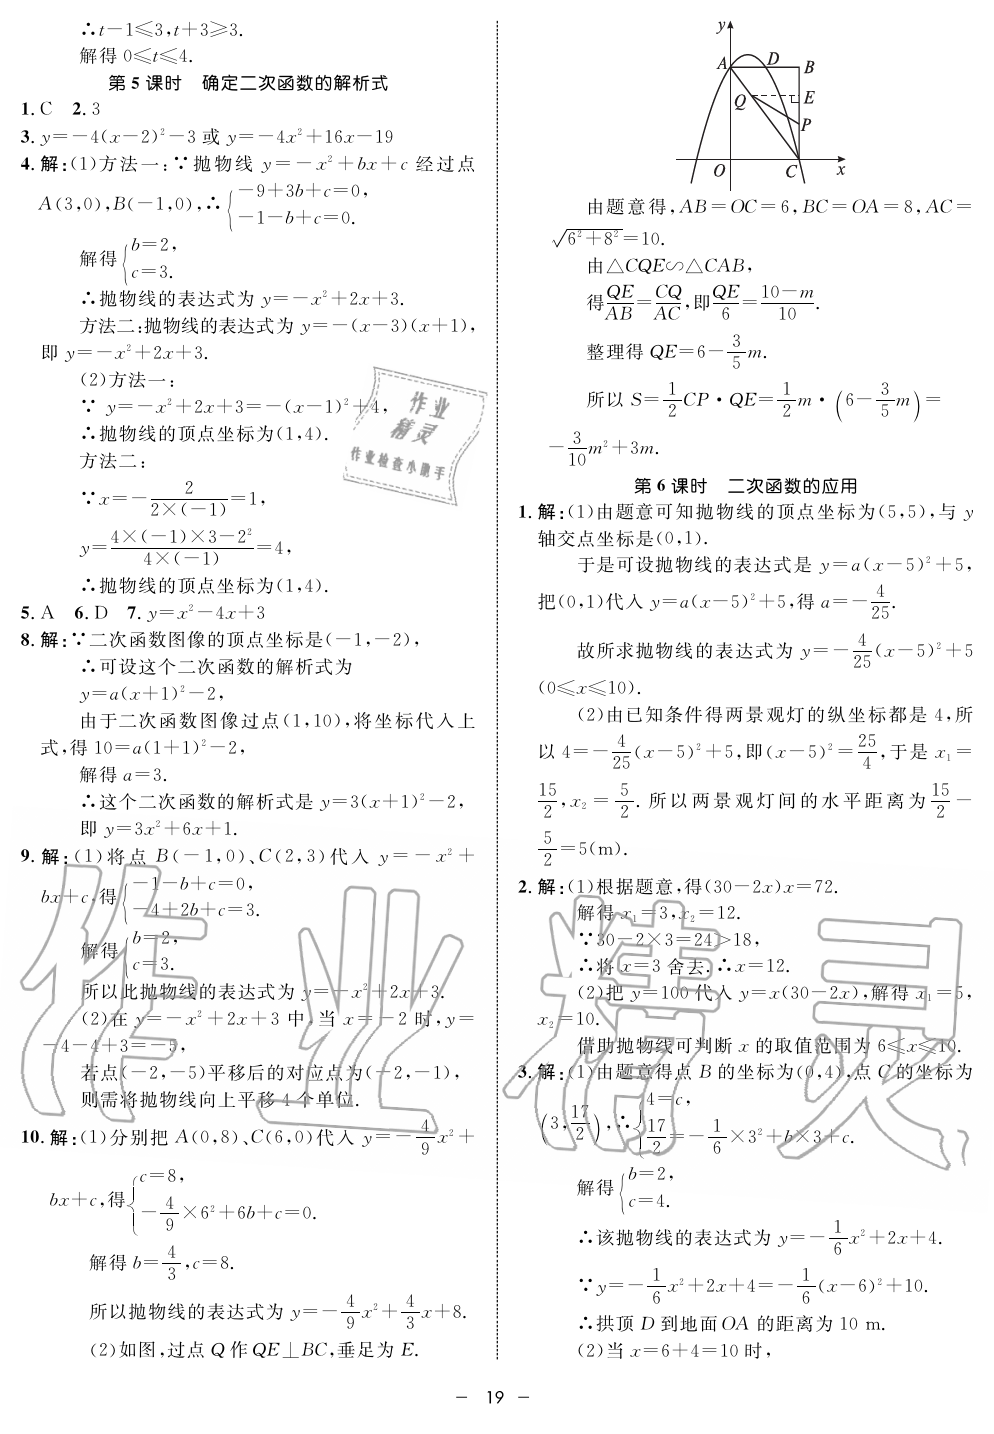 ∴t－1≤3,t＋3≥3.
解得 0≤t≤4.
第 5 课时　确定二次函数的解析式
1. C　2. 3
3. y=－4(x－2)²－3 或 y=－4x²＋16x－19
4. 解:(1)方法一:∵抛物线 y=－x²＋bx＋c 经过点
A(3,0),B(－1,0),∴{－9＋3b＋c=0,
－1－b＋c=0.
解得{b=2,
c=3.
∴抛物线的表达式为 y=－x²＋2x＋3.
方法二:抛物线的表达式为 y=－(x－3)(x＋1),
即 y=－x²＋2x＋3.
(2)方法一:
∵ y=－x²＋2x＋3=－(x－1)²＋4,
∴抛物线的顶点坐标为(1,4).
方法二:
∵x=－2/(2×(－1))=1,
y=(4×(－1)×3－2²)/(4×(－1))=4,
∴抛物线的顶点坐标为(1,4).
5. A　6. D　7. y=x²－4x＋3
8. 解:∵二次函数图像的顶点坐标是(－1,－2),
∴可设这个二次函数的解析式为
y=a(x＋1)²－2,
由于二次函数图像过点(1,10),将坐标代入上
式,得 10=a(1＋1)²－2,
解得 a=3.
∴这个二次函数的解析式是 y=3(x＋1)²－2,
即 y=3x²＋6x＋1.
9. 解:(1)将点 B(－1,0)、C(2,3)代入 y=－x²＋
bx＋c,得{－1－b＋c=0,
－4＋2b＋c=3.
解得{b=2,
c=3.
所以此抛物线的表达式为 y=－x²＋2x＋3.
(2)在 y=－x²＋2x＋3 中,当 x=－2 时,y=
－4－4＋3=－5,
若点(－2,－5)平移后的对应点为(－2,－1),
则需将抛物线向上平移 4 个单位.
10. 解:(1)分别把 A(0,8)、C(6,0)代入 y=－4/9x²＋
bx＋c,得{c=8,
－4/9×6²＋6b＋c=0.
解得 b=4/3,c=8.
所以抛物线的表达式为 y=－4/9x²＋4/3x＋8.
(2)如图,过点 Q 作 QE⊥BC,垂足为 E.
y
A D B
Q E
P
O C x
由题意得,AB=OC=6,BC=OA=8,AC=
√(6²＋8²)=10.
由△CQE∽△CAB,
得QE/AB=CQ/AC,即QE/6=(10－m)/10.
整理得 QE=6－3/5m.
所以 S=1/2CP·QE=1/2m·(6－3/5m)=
－3/10m²＋3m.
第 6 课时　二次函数的应用
1. 解:(1)由题意可知抛物线的顶点坐标为(5,5),与 y
轴交点坐标是(0,1).
于是可设抛物线的表达式是 y=a(x－5)²＋5,
把(0,1)代入 y=a(x－5)²＋5,得 a=－4/25.
故所求抛物线的表达式为 y=－4/25(x－5)²＋5
(0≤x≤10).
(2)由已知条件得两景观灯的纵坐标都是 4,所
以 4=－4/25(x－5)²＋5,即(x－5)²=25/4,于是 x₁=
15/2,x₂=5/2.所以两景观灯间的水平距离为15/2－
5/2=5(m).
2. 解:(1)根据题意,得(30－2x)x=72.
解得 x₁=3,x₂=12.
∵30－2×3=24>18,
∴将 x=3 舍去.∴x=12.
(2)把 y=100 代入 y=x(30－2x),解得 x₁=5,
x₂=10.
借助抛物线可判断 x 的取值范围为 6≤x≤10.
3. 解:(1)由题意得点 B 的坐标为(0,4),点 C 的坐标为
(3,17/2),∴{4=c,
17/2=－1/6×3²＋b×3＋c.
解得{b=2,
c=4.
∴该抛物线的表达式为 y=－1/6x²＋2x＋4.
∵y=－1/6x²＋2x＋4=－1/6(x－6)²＋10.
∴拱顶 D 到地面 OA 的距离为 10 m.
(2)当 x=6＋4=10 时,
作业
精灵
作业检查小助手
作业精灵
－ 19 －